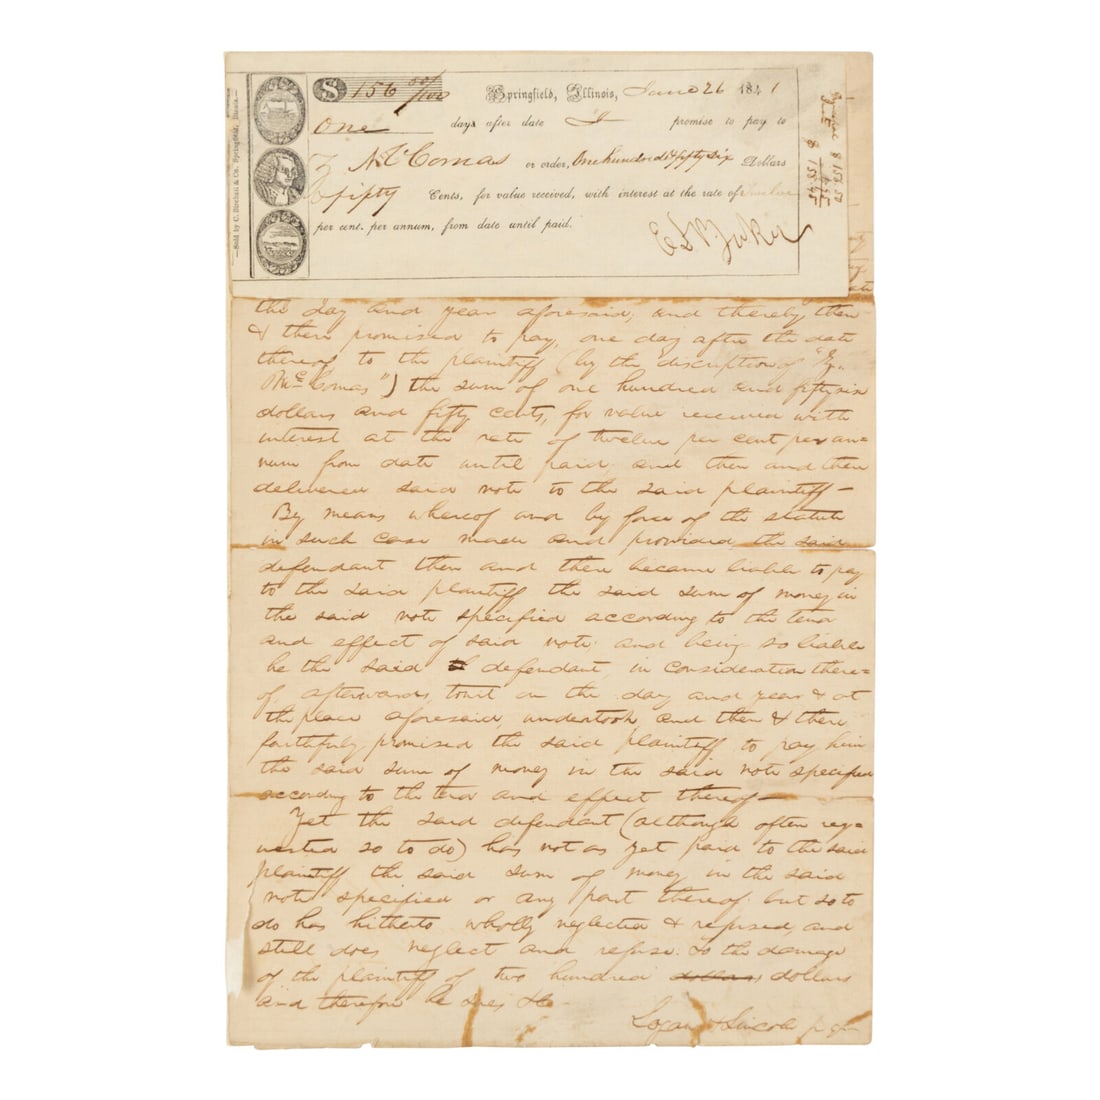 $ 156 50/100 Springfield, Illinois, June 26 1841
One days after date I promise to pay to
Z McComas or order, One hundred & fifty six Dollars
& fifty Cents, for value received, with interest at the rate of Twelve
per cent. per annum, from date until paid.
—Sold by C. Birchall & Co. Springfield, Illinois.—
the day and year aforesaid, and thereby then
& there promised to pay, one day after the date
thereof to the plaintiff (by the discription of "Z.
McComas") the sum of one hundred and fifty six
dollars and fifty cents, for value received with
interest at the rate of twelve per cent per an=
num from date until paid; and then and there
delivered said note to the said plaintiff—
By means whereof and by force of the statute
in such case made and provided, the said
defendant then and there became liable to pay
to the said plaintiff the said sum of money in
the said note specified according to the tenor
and effect of said note; and being so liable
he the said defendant, in consideration there=
of afterwards, towit on the day and year & at
the place aforesaid, undertook, and then & there
faithfully promised the said plaintiff to pay him
the said sum of money in the said note specified
according to the tenor and effect thereof—
Yet the said defendant (although often req=
uested so to do) has not as yet paid to the said
plaintiff the said sum of money in the said
note specified or any part thereof; but so to
do has hitherto wholly neglected & refused, and
still does neglect and refuse. To the damage
of the plaintiff of two hundred dollars dollars
and therefore he sues &c
Logan & Lincoln p q